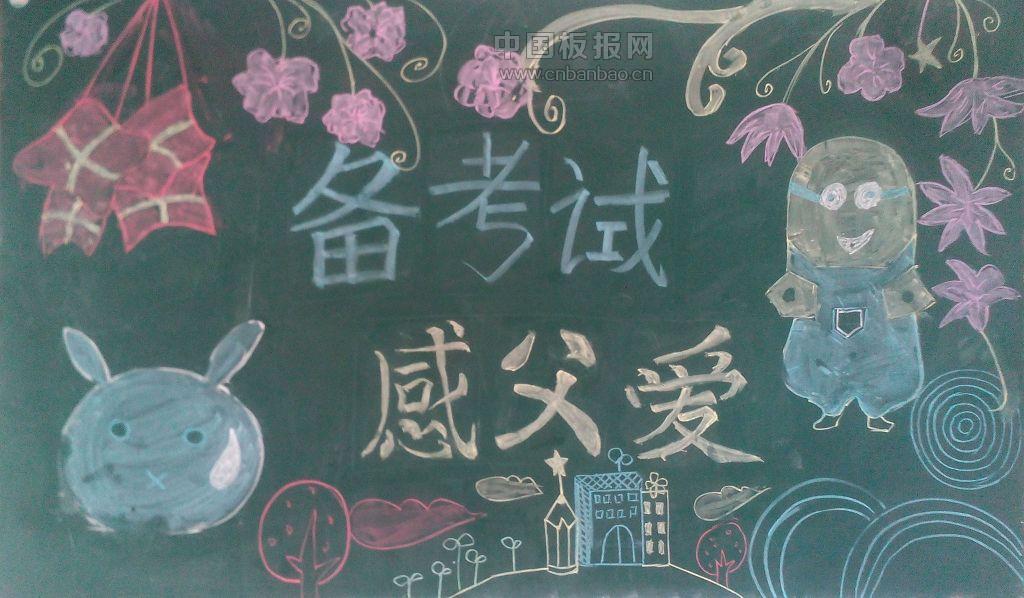 中国板报网
www.cnbanbao.cn
备考试
感父爱